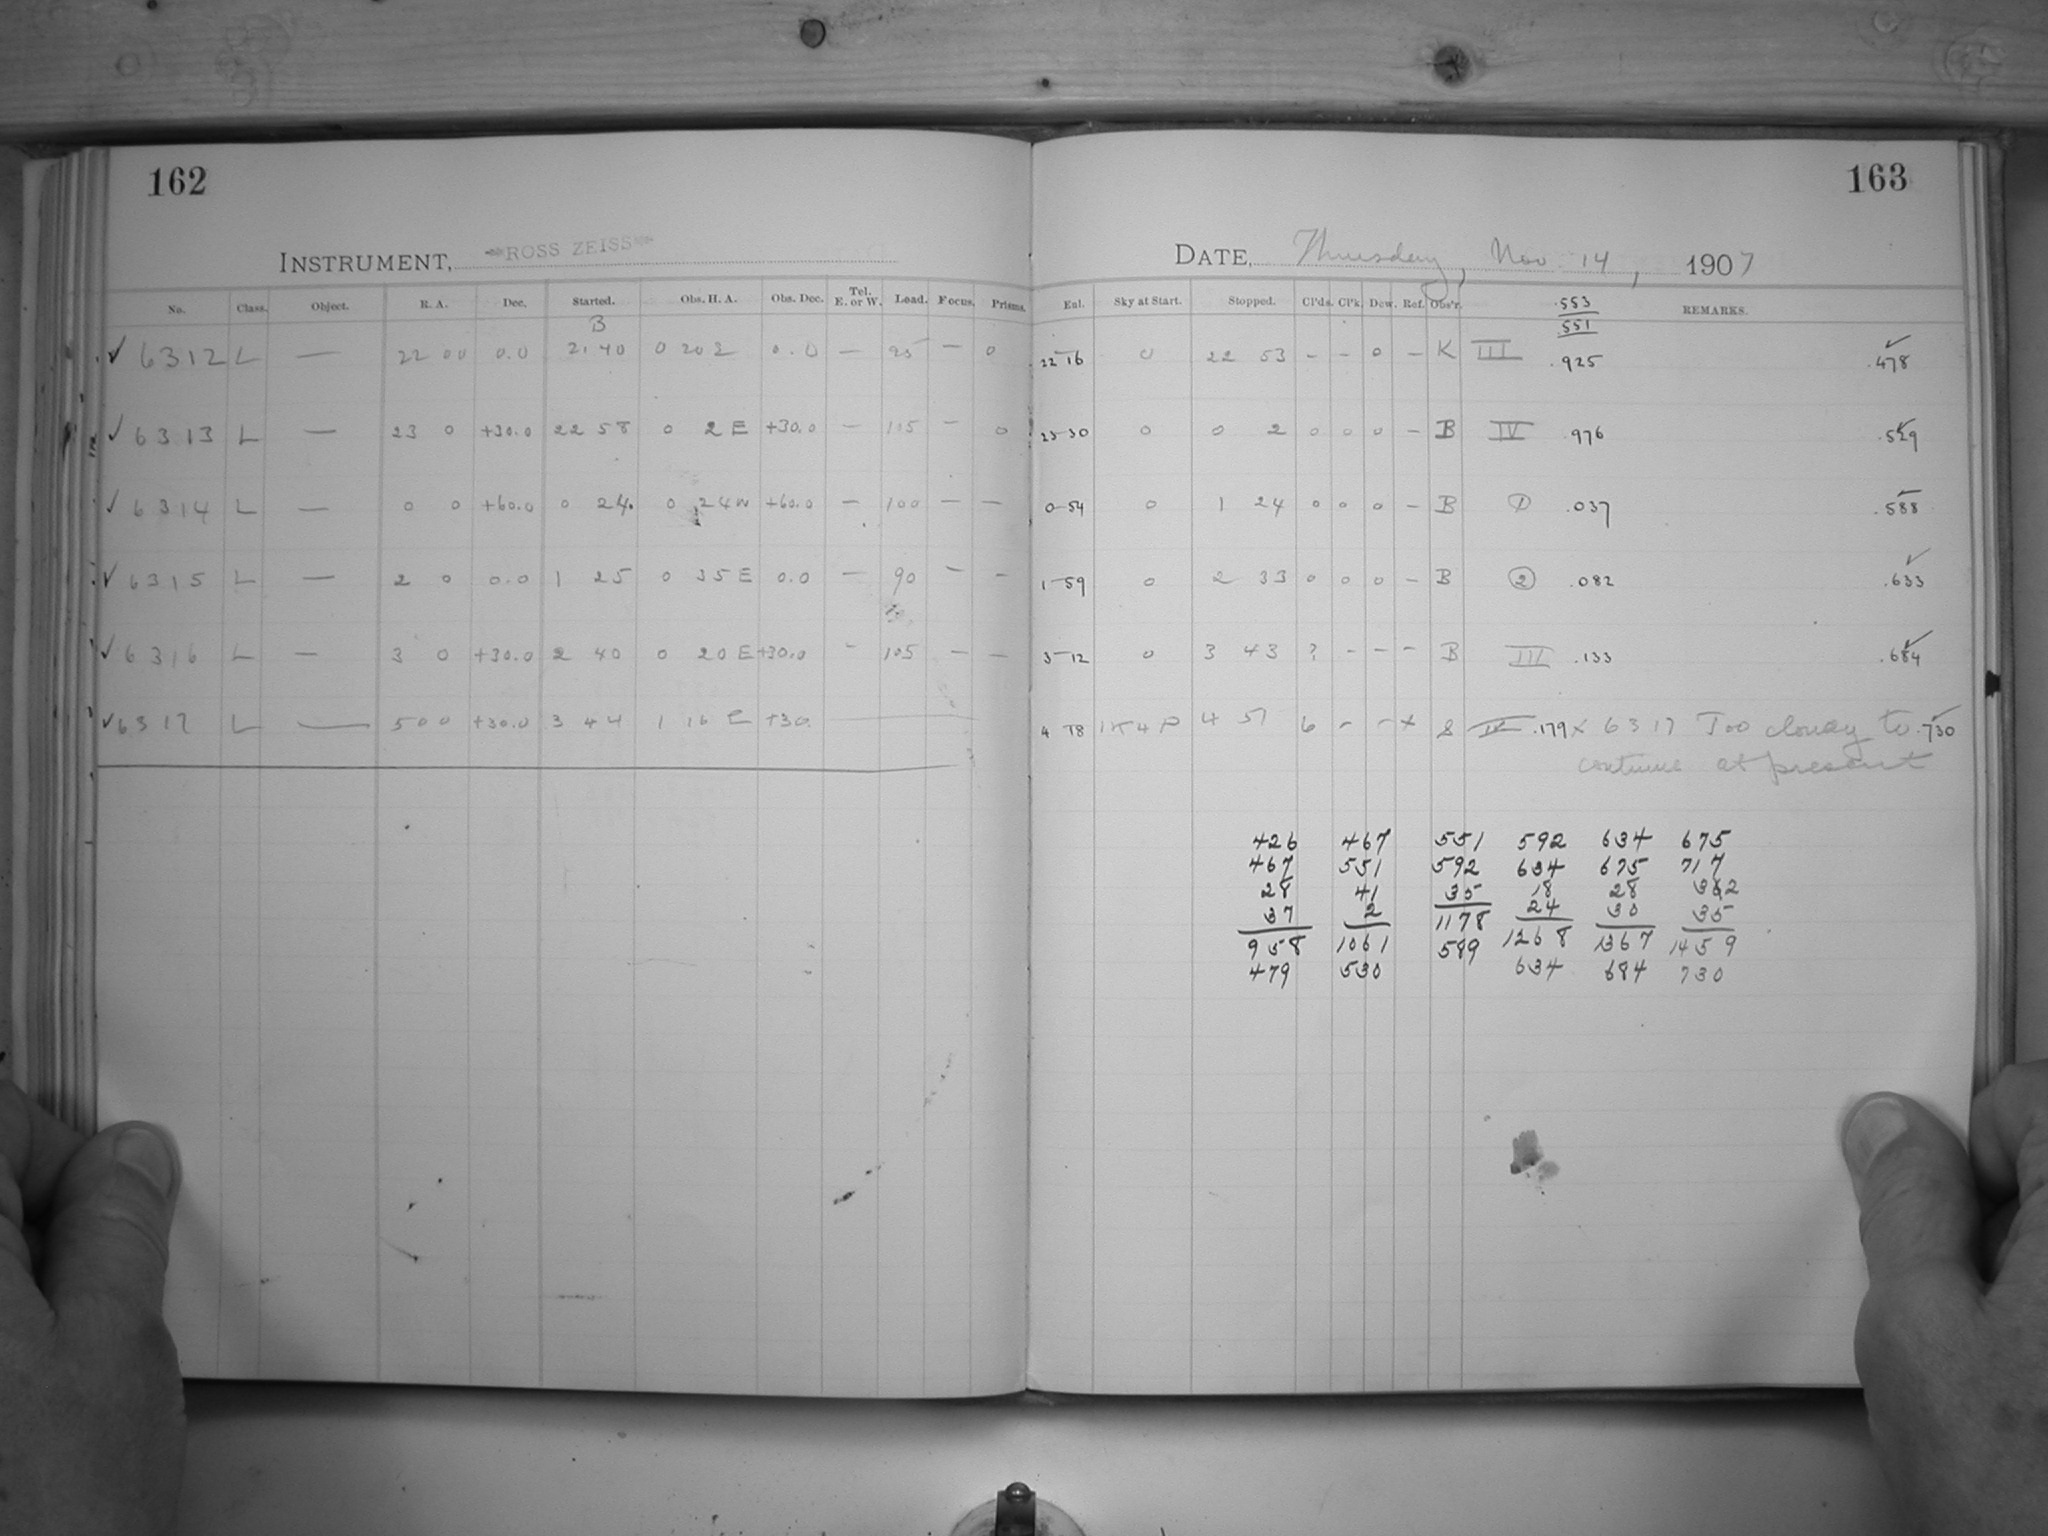 162
163
INSTRUMENT, ROSS ZEISS
DATE, Thursday, Nov 14, 1907
No. Class. Object. R. A. Dec. Started. Obs. H. A. Obs. Dec. Tel. E. or W. Load. Focus. Prisms. Eul. Sky at Start. Stopped. Cl'ds. Cl'k. Dew. Ref. Obs'r. REMARKS.
.553
.551
B
✓ 6312 L — 22 00 0.0 21 40 0 20 E 0.0 — 95 — 0 22 16 0 22 53 - - 0 - K III .925 .478
✓ 6313 L — 23 0 +30.0 22 58 0 2 E +30.0 — 105 — 0 23-30 0 0 2 0 0 0 - B IV .976 .529
✓ 6314 L — 0 0 +60.0 0 24 0 24 W +60.0 — 100 — — 0-54 0 1 24 0 0 0 - B 1 .037 .588
✓ 6315 L — 2 0 0.0 1 25 0 35 E 0.0 — 90 — - 1-59 0 2 33 0 0 0 - B 2 .082 .633
✓ 6316 L — 3 0 +30.0 2 40 0 20 E +30.0 - 105 — — 3-12 0 3 43 ? - - - B III .133 .684
✓ 6317 L — 5 00 +30.0 3 44 1 16 E +30. 4 18 4 51 6 - - x IV .179 x 6317 Too cloudy to .730
continue at present
426 467 551 592 634 675
467 551 592 634 675 717
28 41 35 18 28 32
37 2 1178 24 30 35
958 1061 589 1268 1367 1459
479 530 634 684 730